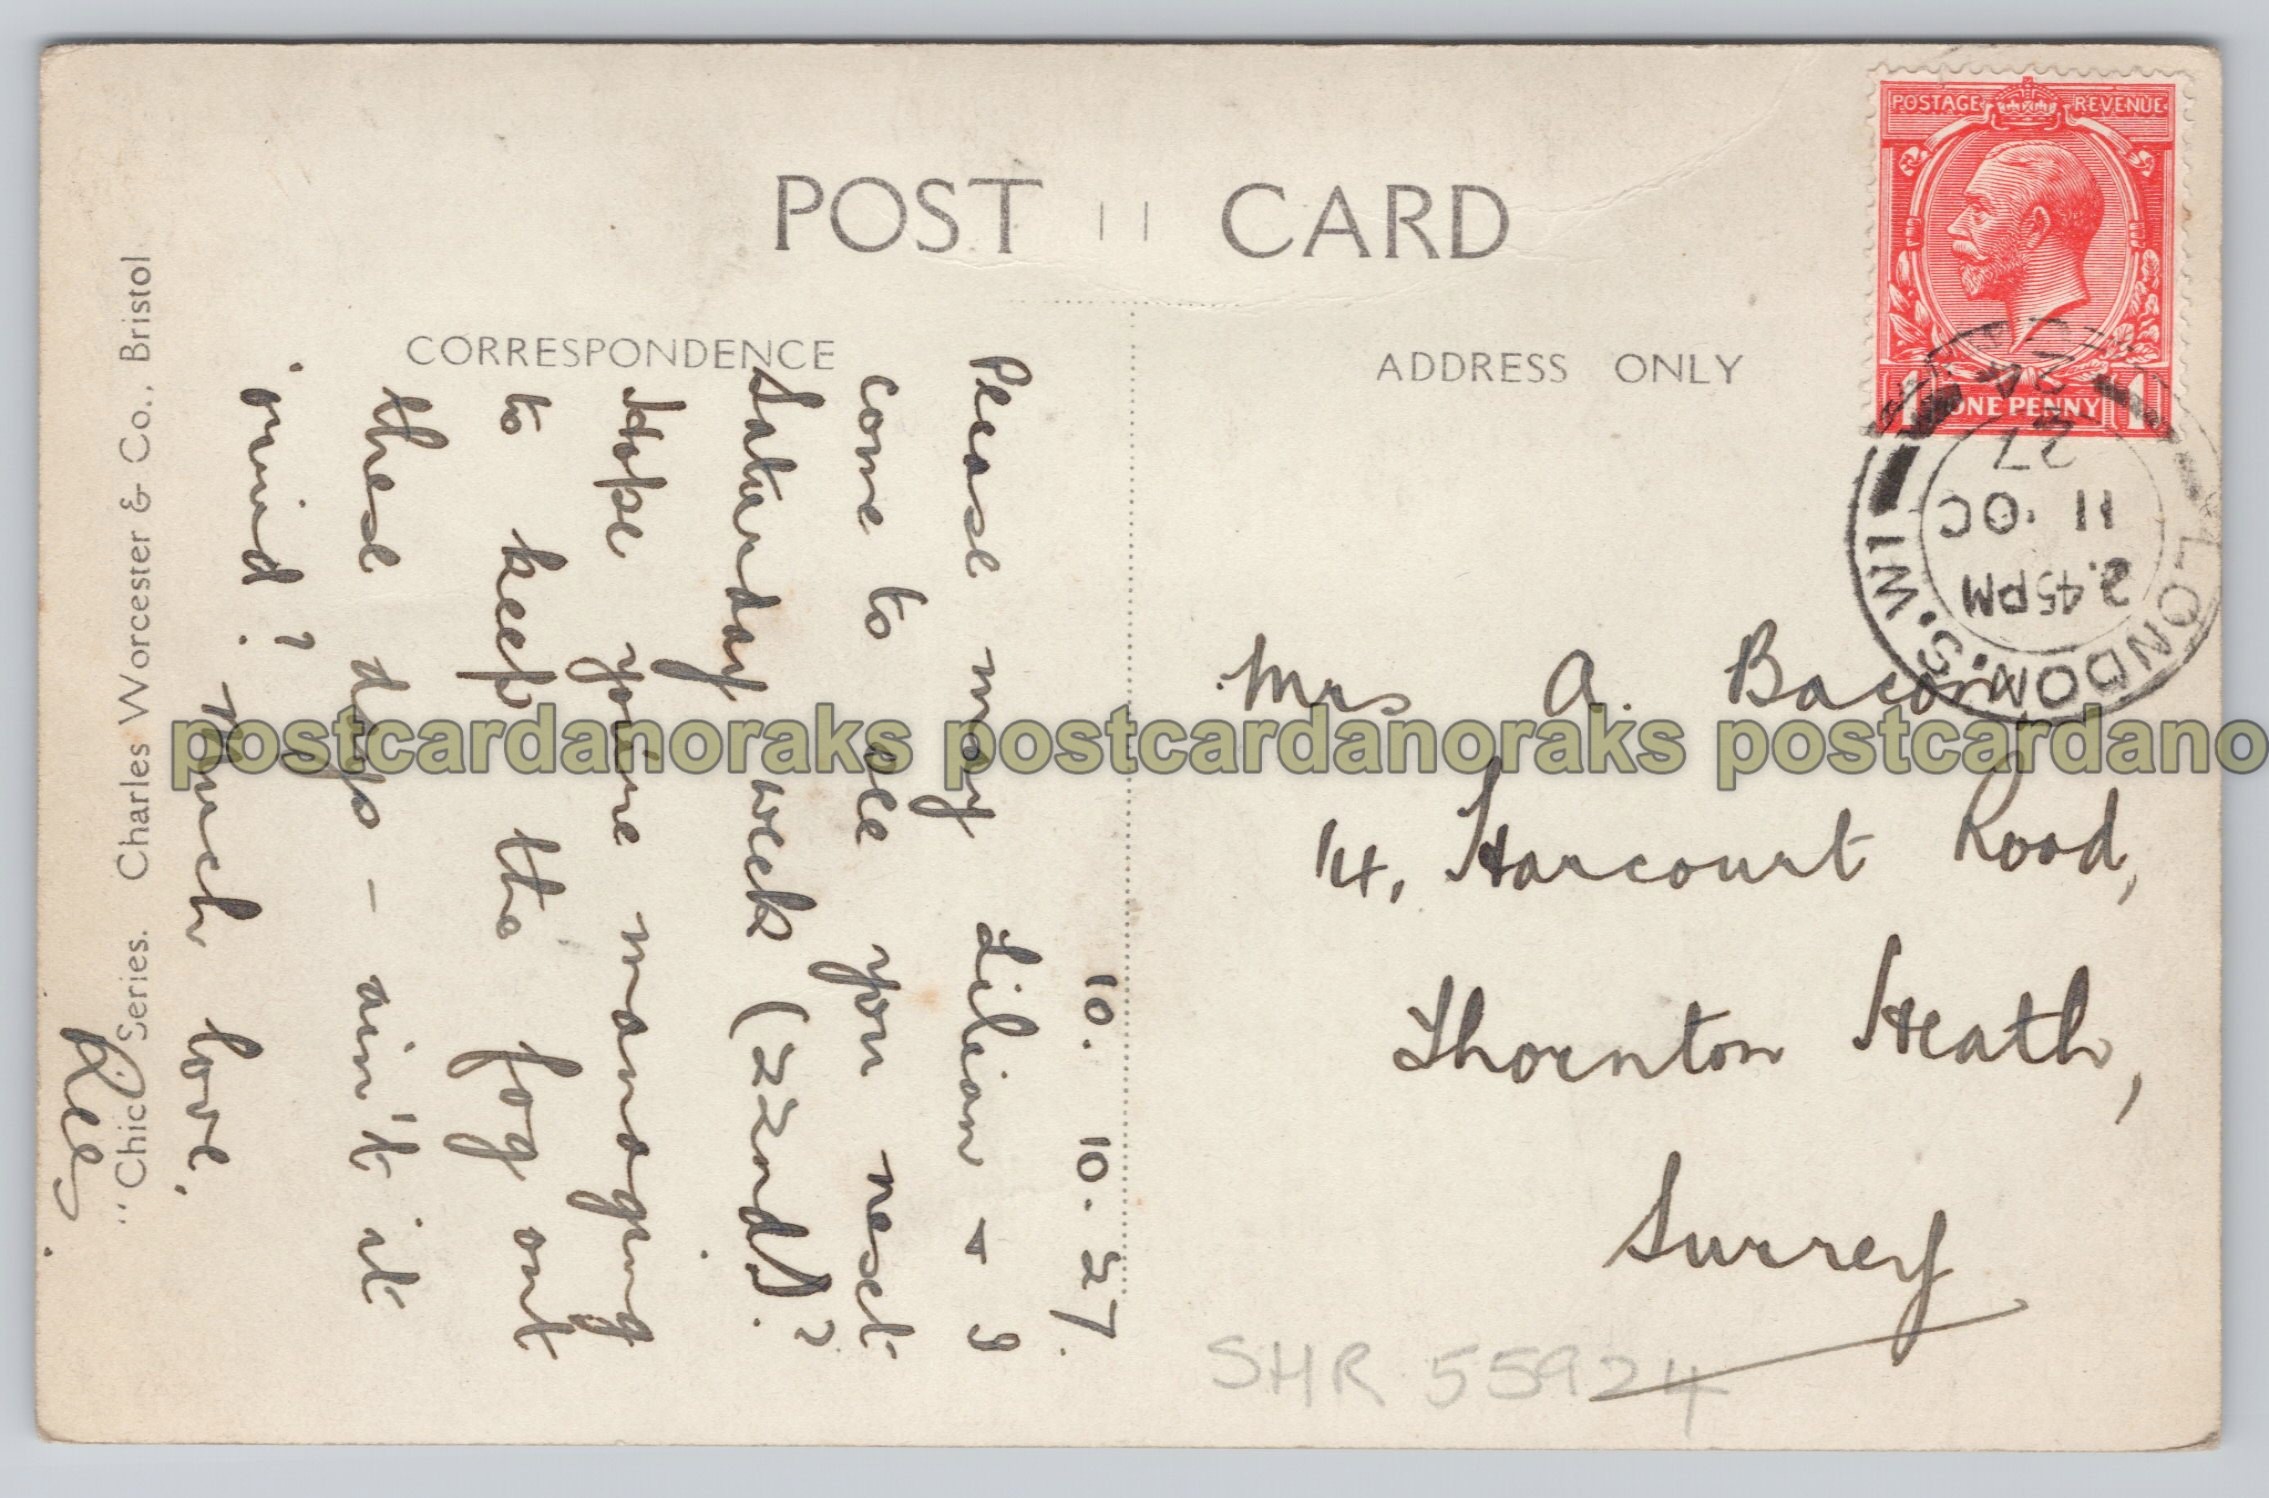 POST CARD
CORRESPONDENCE
ADDRESS ONLY
POSTAGE REVENUE
1 ONE PENNY 1
LONDON. S.W.1
2.45PM
11 . OC
27
10. 10. 27.
Please may Lilian & I
come to see you next
Saturday week (22nd)?
Hope you're managing
to keep the fog out
these days - ain't it
'orrid? Much love.
Mrs A. Bacon
14, Harcourt Road,
Thornton Heath,
Surrey
SHR 55924
"Chic" Series. Charles Worcester & Co., Bristol
postcardanoraks postcardanoraks postcardano